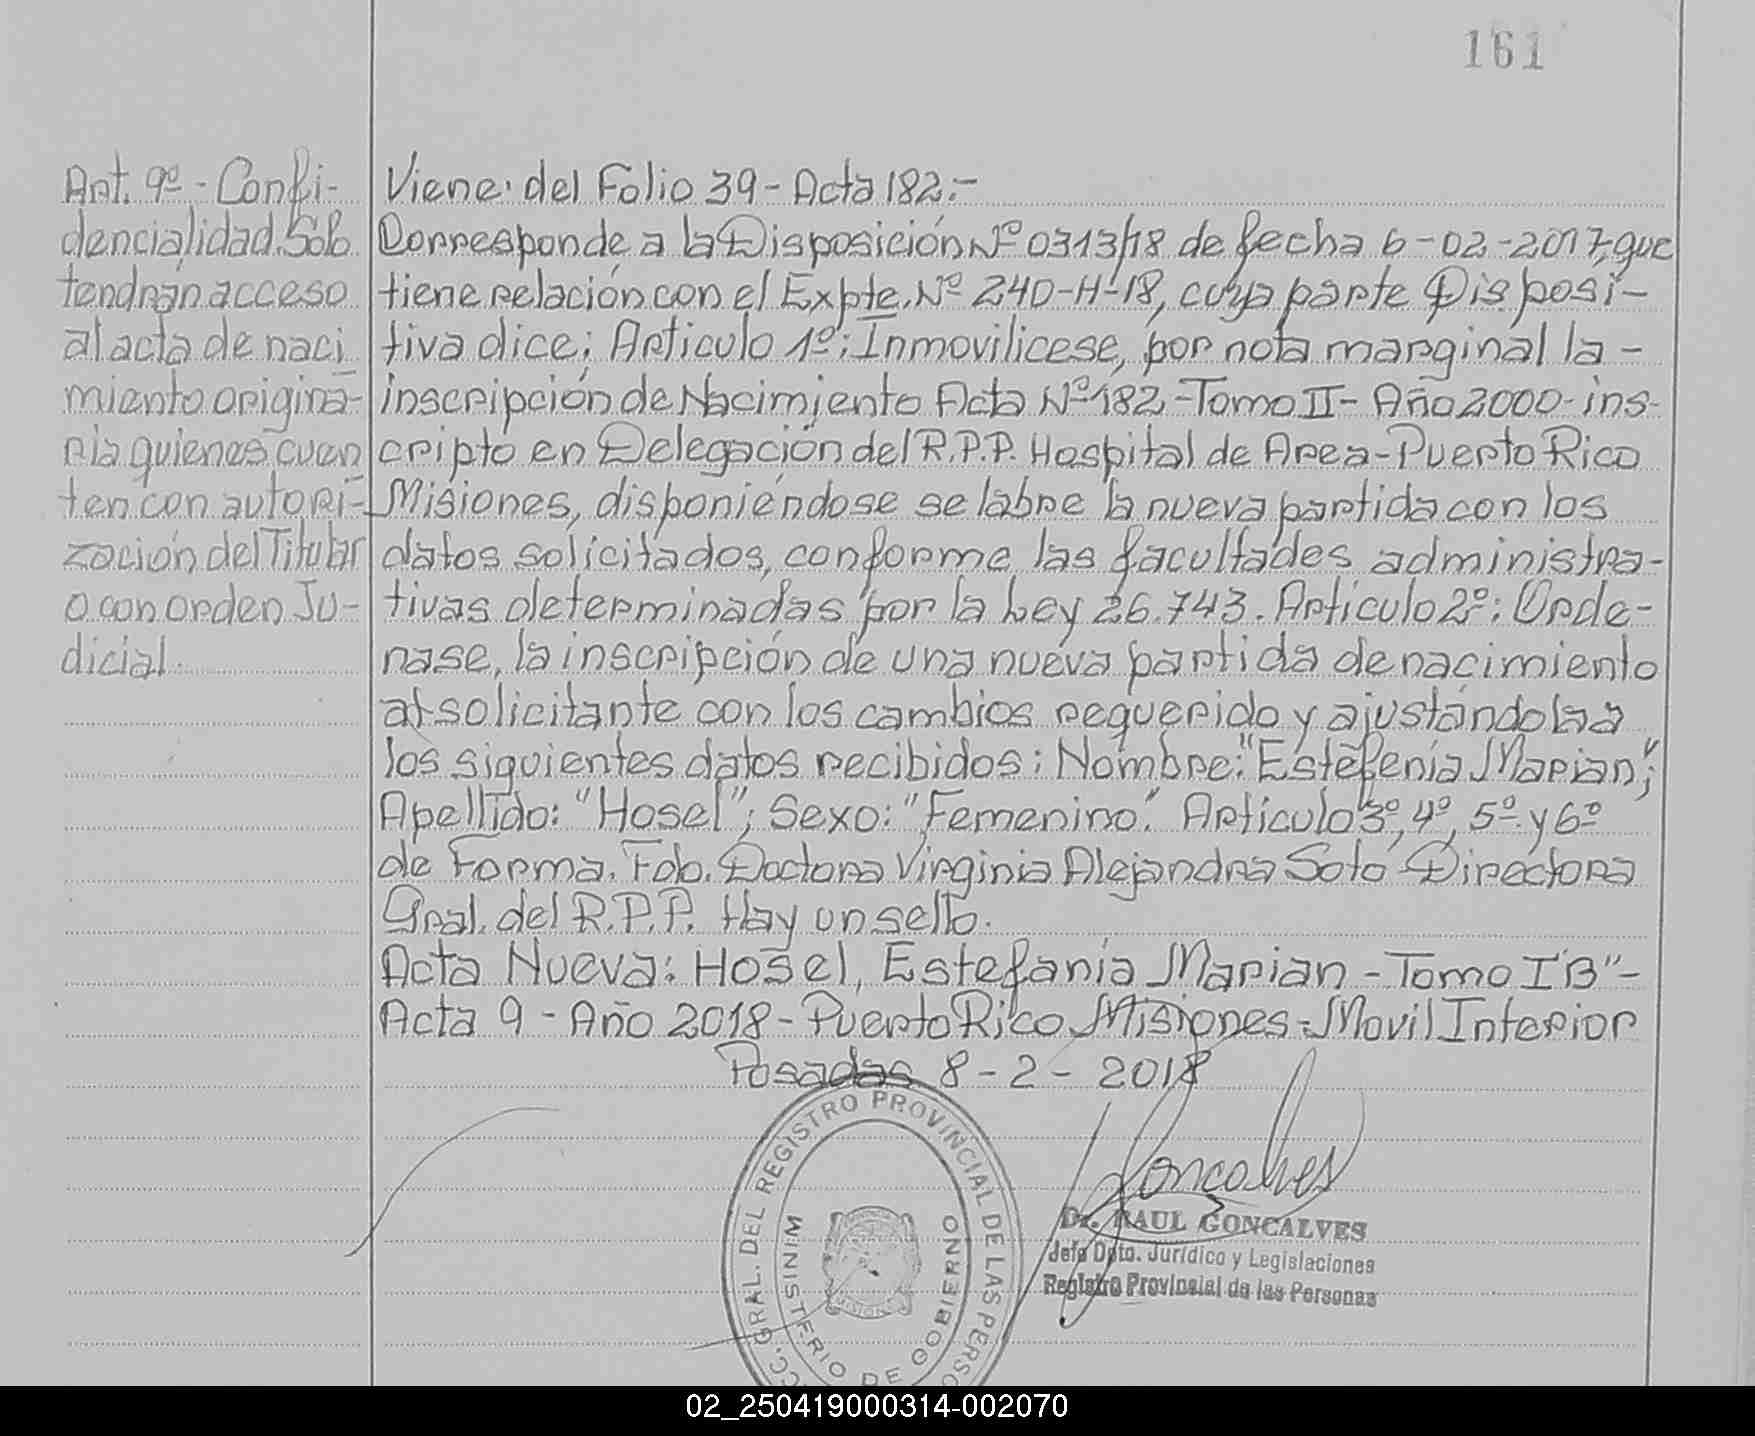 161
Art. 9º - Confi-
dencialidad. Solo
tendran acceso
al acta de naci
miento origina-
ria quienes cuen
ten con autori-
zación del Titular
o con orden Ju-
dicial.
Viene del Folio 39 - Acta 182.-
Corresponde a la Disposición Nº 0313/18 de fecha 6-02-2017, que
tiene relación con el Expte. Nº 240-H-18, cuya parte Disposi-
tiva dice; Articulo 1º; Inmovilicese, por nota marginal la -
inscripción de Nacimiento Acta Nº 182 - Tomo II - Año 2000 - ins-
cripto en Delegación del R.P.P. Hospital de Area - Puerto Rico
Misiones, disponiéndose se labre la nueva partida con los
datos solicitados, conforme las facultades administra-
tivas determinadas por la Ley 26.743. Articulo 2º: Orde-
nase, la inscripción de una nueva partida de nacimiento
al solicitante con los cambios requerido y ajustándola a
los siguientes datos recibidos: Nombre: "Estefenia Marian";
Apellido: "Hosel"; Sexo: "Femenino". Articulo 3º, 4º, 5º y 6º
de Forma. Fdo. Doctora Virginia Alejandra Soto Directora
Gral. del R.P.P. Hay un sello.
Acta Nueva: Hosel, Estefania Marian - Tomo I "B" -
Acta 9 - Año 2018 - Puerto Rico Misiones - Movil Interior
Posadas 8 - 2 - 2018
GRAL. DEL REGISTRO PROVINCIAL DE LAS PERSO
MINISTERIO DE GOBIERNO
Goncalves
Dr. RAUL GONCALVES
Jefe Dpto. Jurídico y Legislaciones
Registro Provincial de las Personas
02_250419000314-002070